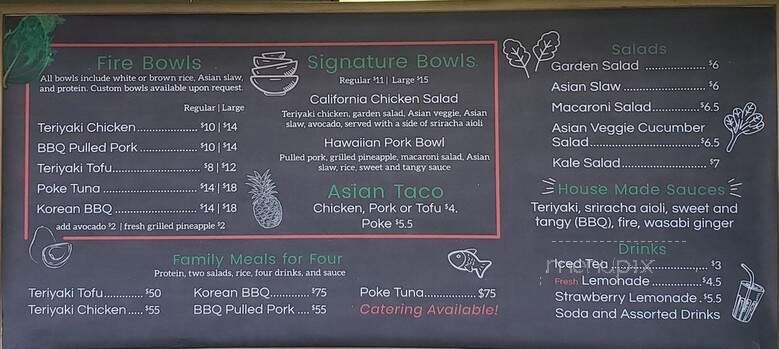 Fire Bowls
All bowls include white or brown rice, Asian slaw,
and protein. Custom bowls available upon request.
Regular | Large
Teriyaki Chicken..................... $10 | $14
BBQ Pulled Pork .................... $10 | $14
Teriyaki Tofu........................... $8 | $12
Poke Tuna .............................. $14 | $18
Korean BBQ .......................... $14 | $18
add avocado $2 | fresh grilled pineapple $2
Signature Bowls
Regular $11 | Large $15
California Chicken Salad
Teriyaki chicken, garden salad, Asian veggie, Asian
slaw, avocado, served with a side of sriracha aioli
Hawaiian Pork Bowl
Pulled pork, grilled pineapple, macaroni salad, Asian
slaw, rice, sweet and tangy sauce
Asian Taco
Chicken, Pork or Tofu $4.
Poke $5.5
Family Meals for Four
Protein, two salads, rice, four drinks, and sauce
Teriyaki Tofu............ $50
Teriyaki Chicken..... $55
Korean BBQ............ $75
BBQ Pulled Pork .... $55
Poke Tuna............... $75
Catering Available!
Salads
Garden Salad ..................... $6
Asian Slaw .......................... $6
Macaroni Salad................. $6.5
Asian Veggie Cucumber
Salad................................... $6.5
Kale Salad.......................... $7
House Made Sauces
Teriyaki, sriracha aioli, sweet and
tangy (BBQ), fire, wasabi ginger
Drinks
Iced Tea .............................. $3
Fresh Lemonade .................... $4.5
Strawberry Lemonade . $5.5
Soda and Assorted Drinks
menupix